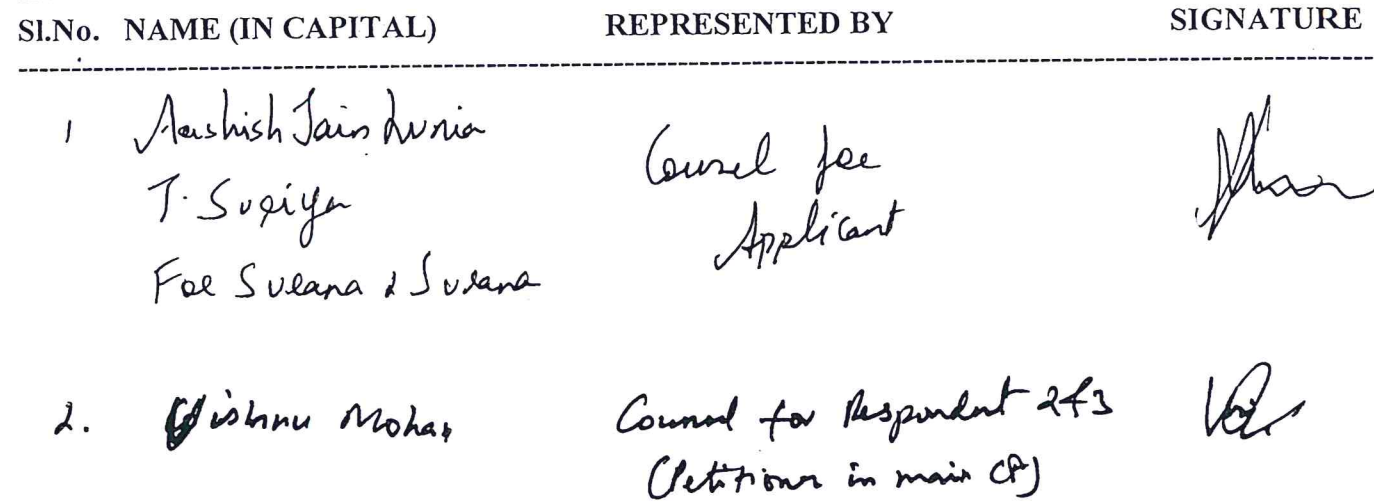 Sl.No. NAME (IN CAPITAL) REPRESENTED BY SIGNATURE
1 Aashish Jain Lunia
T. Supiya
For Surana & Surana
Counsel for
Applicant
2. Vishnu Mohan Counsel for Respondent 2&3
(Petitioner in main CP)